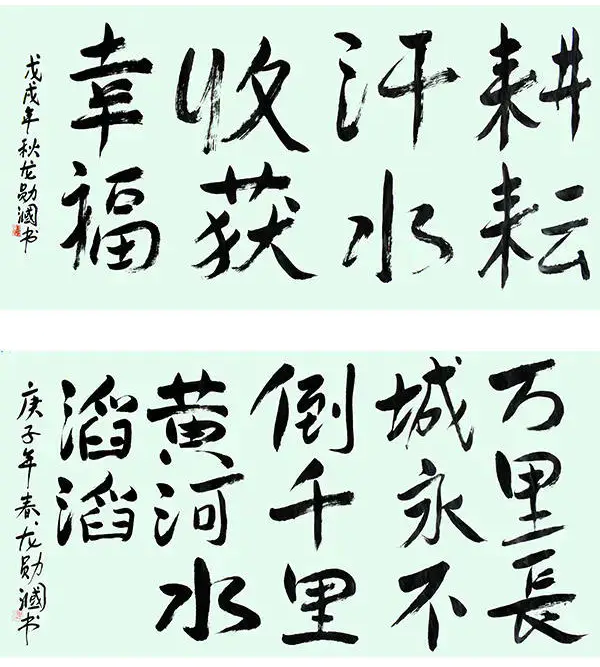 耕耘
汗水
收获
幸福
戊戌年秋龙勋漍书
万里長
城永不
倒千里
黄河水
滔滔
庚子年春龙勋漍书